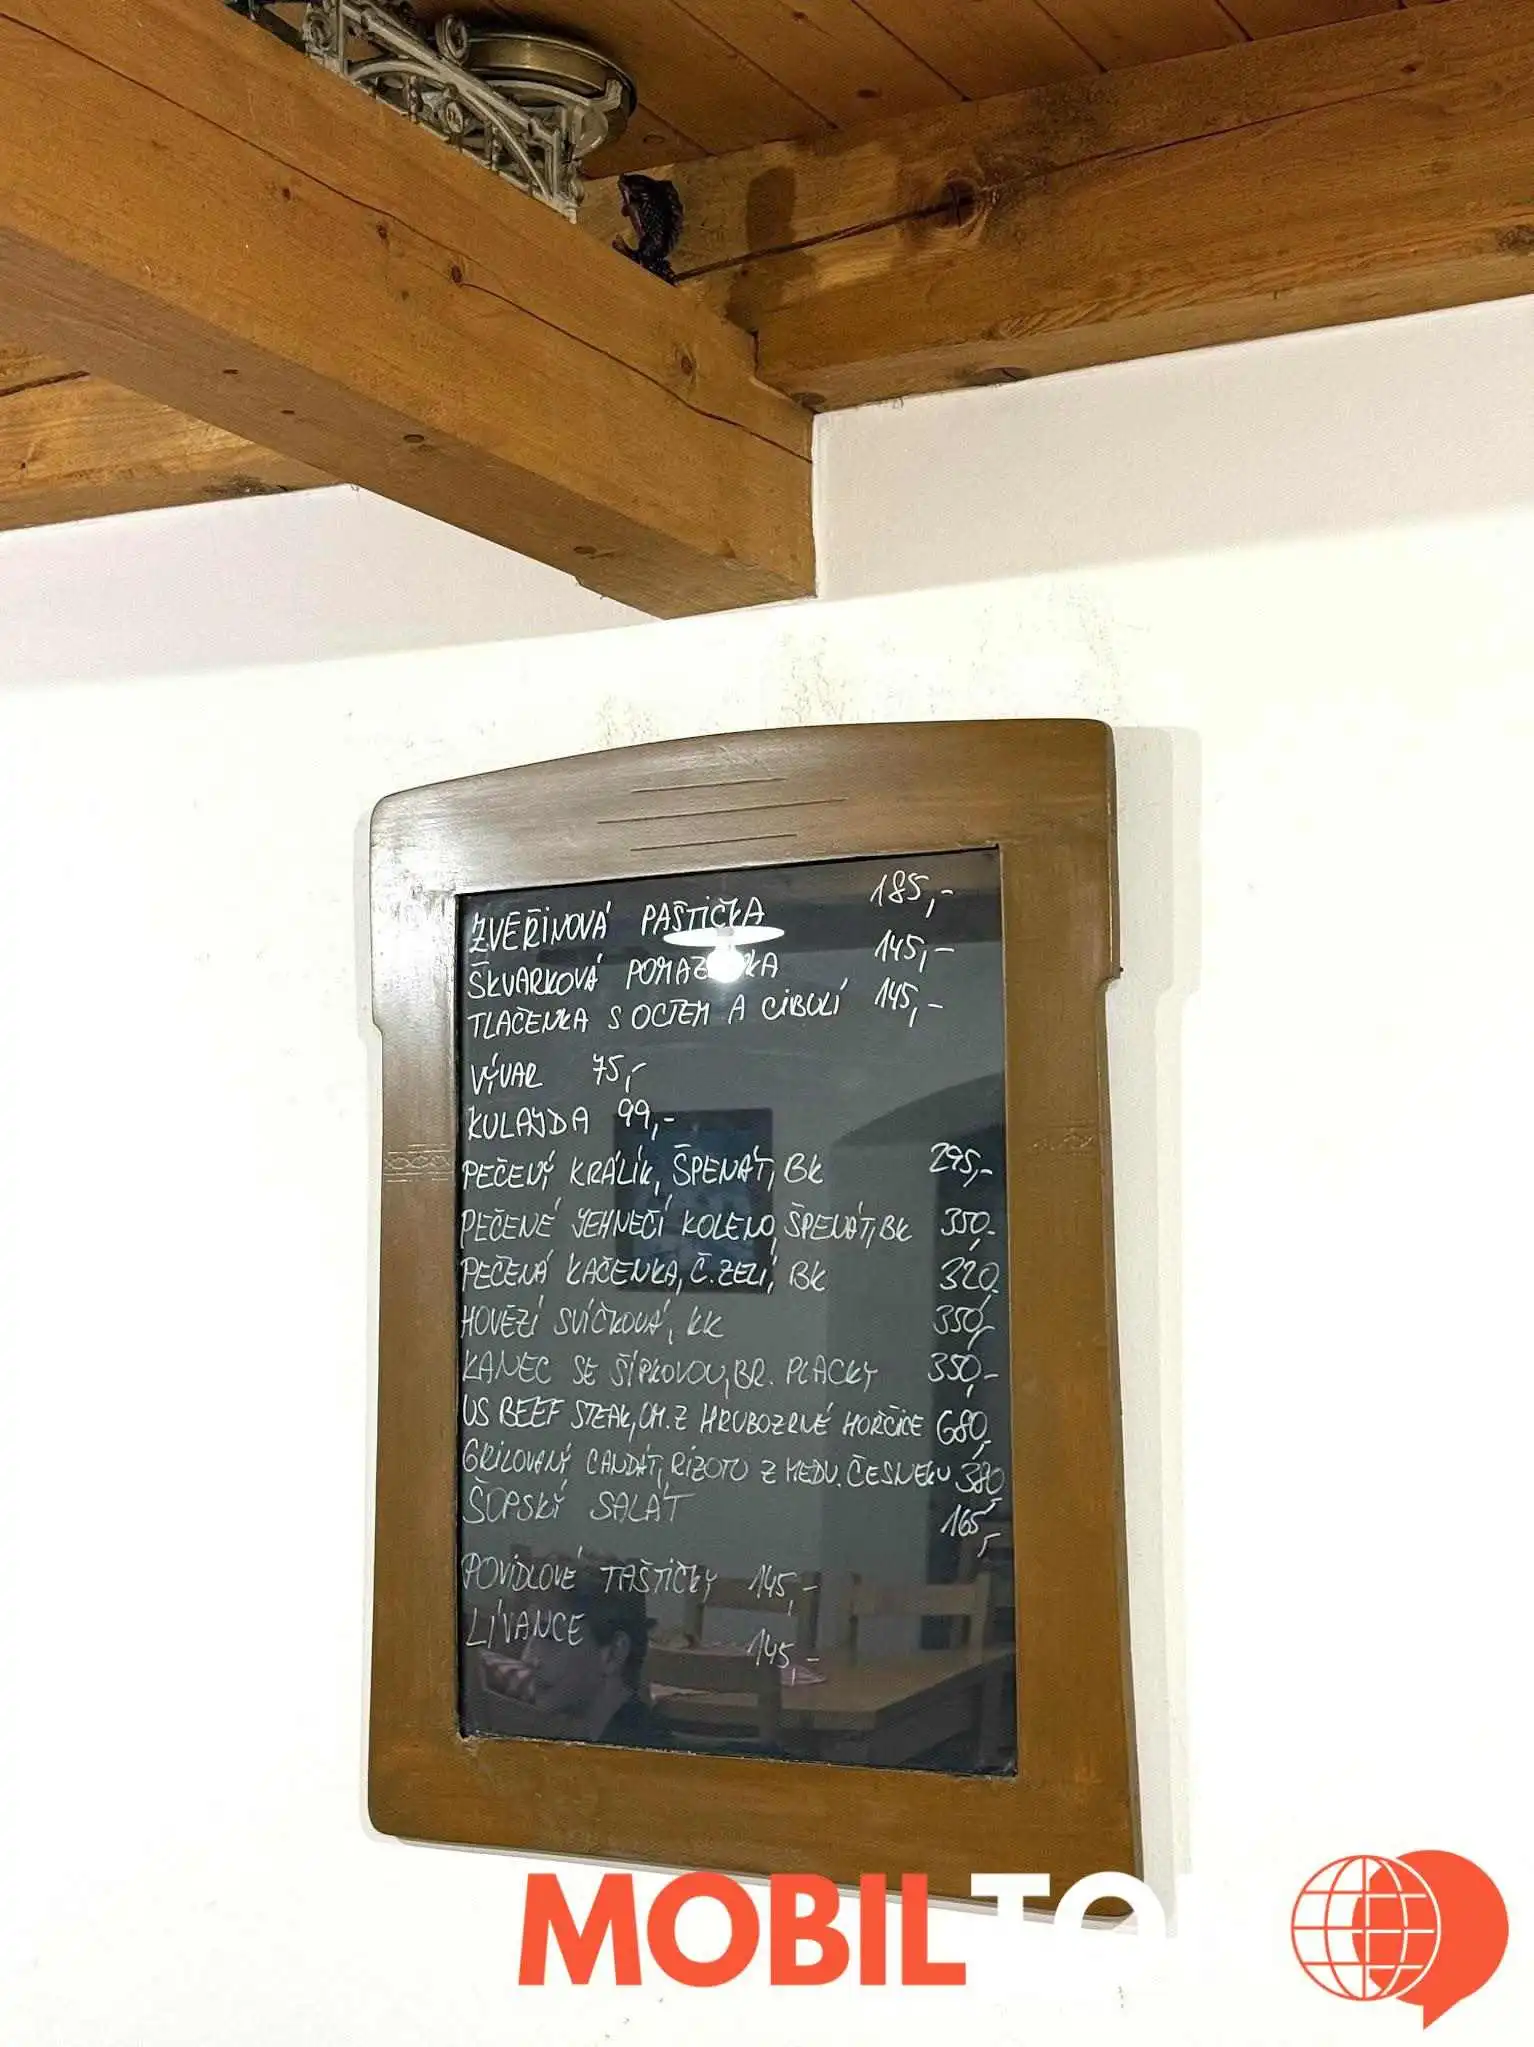 ZVEŘINOVÁ PAŠTIČKA 185,-
ŠKVARKOVÁ POMAZÁNKA 145,-
TLAČENKA S OCTEM A CIBULÍ 145,-
VÝVAR 75,-
KULAJDA 99,-
PEČENÝ KRÁLÍK, ŠPENÁT, BK 295,-
PEČENÉ JEHNEČÍ KOLENO, ŠPENÁT, BK 350,-
PEČENÁ KAČENKA, Č. ZELÍ, BK 320,-
HOVĚZÍ SVÍČKOVÁ, KK 350,-
KANEC SE ŠÍPKOVOU, BR. PLACKY 350,-
US BEEF STEAK, OM. Z HRUBOZRNÉ HOŘČICE 680,-
GRILOVANÝ CANDÁT, RIZOTO Z MEDV. ČESNEKU 380,-
ŠOPSKÝ SALÁT 165,-
POVIDLOVÉ TAŠTIČKY 145,-
LÍVANCE 145,-
MOBIL